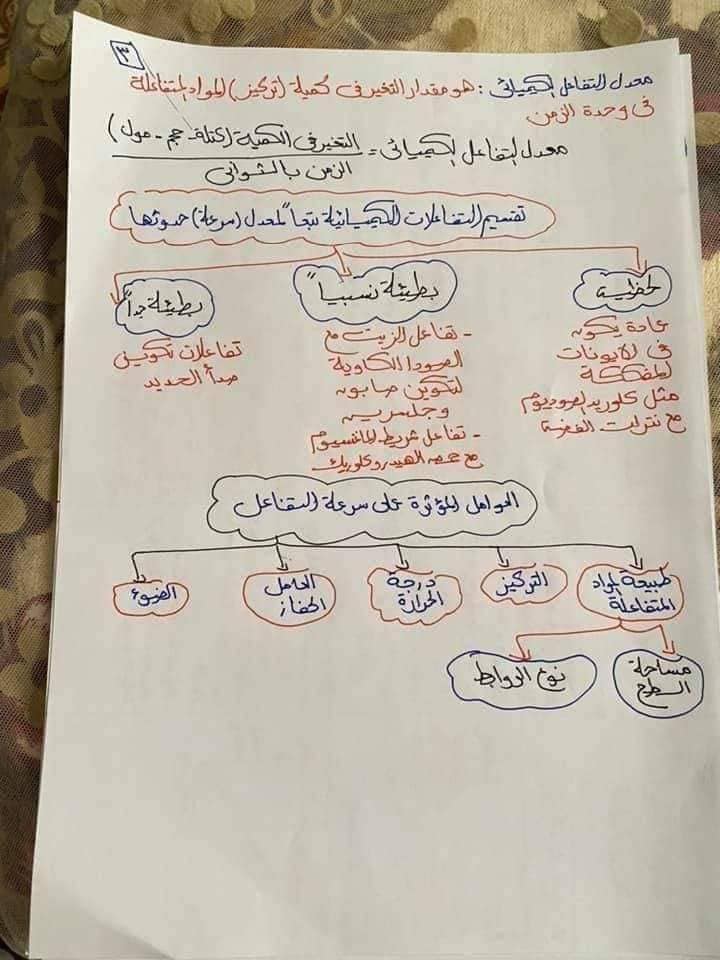 ٣
معدل التفاعل الكيميائى : هو مقدار التغير فى كمية (تركيز) المواد المتفاعلة
فى وحدة الزمن
معدل التفاعل الكيميائى = التغير فى الكمية (كتلة - حجم - مول)
الزمن بالثوانى
تقسيم التفاعلات الكيميائية تبعاً لمعدل (سرعة) حدوثها
لحظية
عادة يكون
فى الايونات
المفككة
مثل كلوريد الصوديوم
مع نترات الفضة
بطيئة نسبياً
- تفاعل الزيت مع
الصودا الكاوية
لتكوين صابون
وجلسرين
- تفاعل شريط الماغنسيوم
مع حمض الهيدروكلوريك
بطيئة جداً
تفاعلات تكوين
صدأ الحديد
العوامل المؤثرة على سرعة التفاعل
طبيعة المواد
المتفاعلة
التركيز
درجة
الحرارة
العامل
الحفاز
الضوء
مساحة
السطح
نوع الروابط